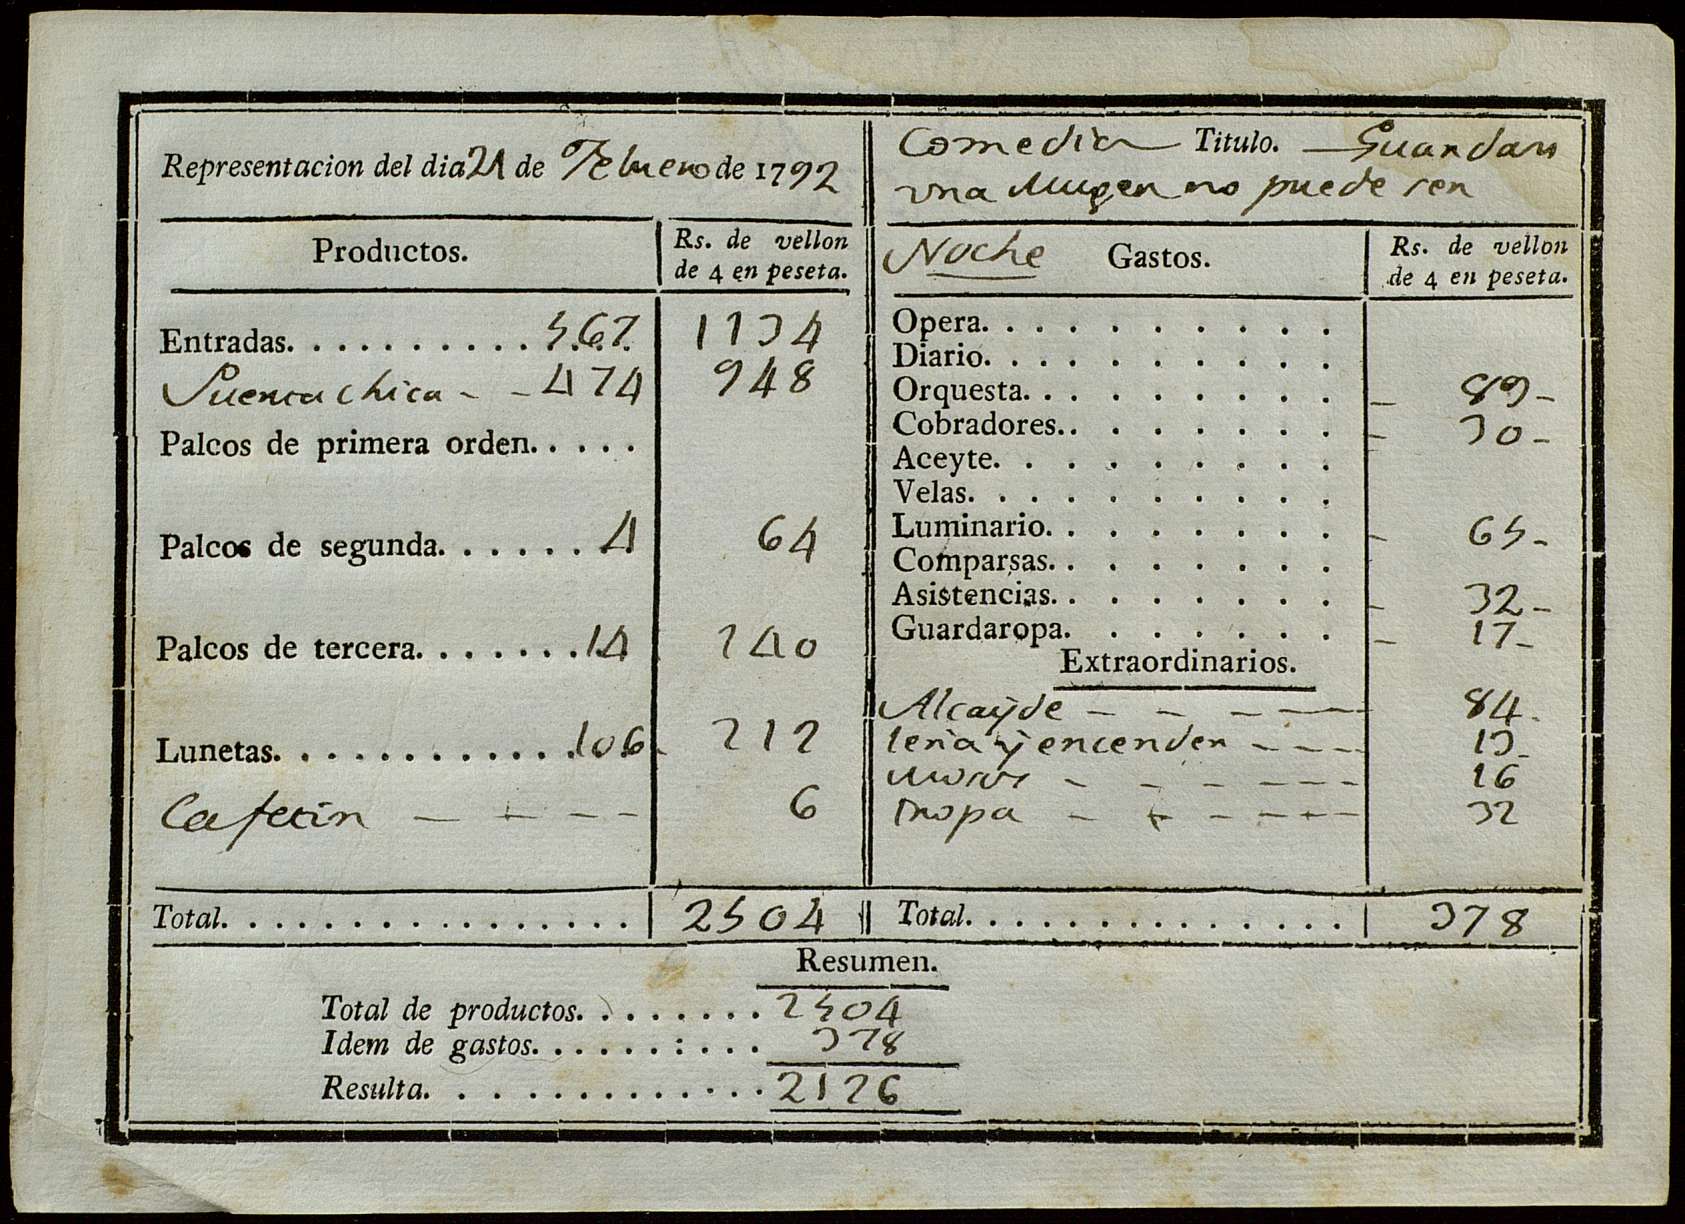 Representacion del dia 21 de Febrero de 1792
Comedia Titulo. Guardar
una Muger no puede ser
Productos. Rs. de vellon
de 4 en peseta.
Noche Gastos. Rs. de vellon
de 4 en peseta.
Entradas. . . . . . . . . . 567. 1134
Puerta chica - - 474 948
Palcos de primera orden. . . . .
Palcos de segunda. . . . . . 4 64
Palcos de tercera. . . . . . . 14 140
Lunetas. . . . . . . . . . . . 106 212
Cafetin - - - - 6
Total. . . . . . . . . . . . . . . . 2504
Opera. . . . . . . . . .
Diario. . . . . . . . . .
Orquesta. . . . . . . . . - 89 -
Cobradores. . . . . . . . - 30 -
Aceyte. . . . . . . . . .
Velas. . . . . . . . . .
Luminario. . . . . . . . - 65 -
Comparsas. . . . . . . .
Asistencias. . . . . . . . - 32 -
Guardaropa. . . . . . . - 17 -
Extraordinarios.
Alcayde - - - - 84 -
leña y encender - - - - 13 -
Mozos - - - - - - 16
tropa - - - - - - 32
Total. . . . . . . . . . . . . . . 378
Resumen.
Total de productos. . . . . . . . 2504
Idem de gastos. . . . . . : . . . 378
Resulta. . . . . . . . . . . . . 2126